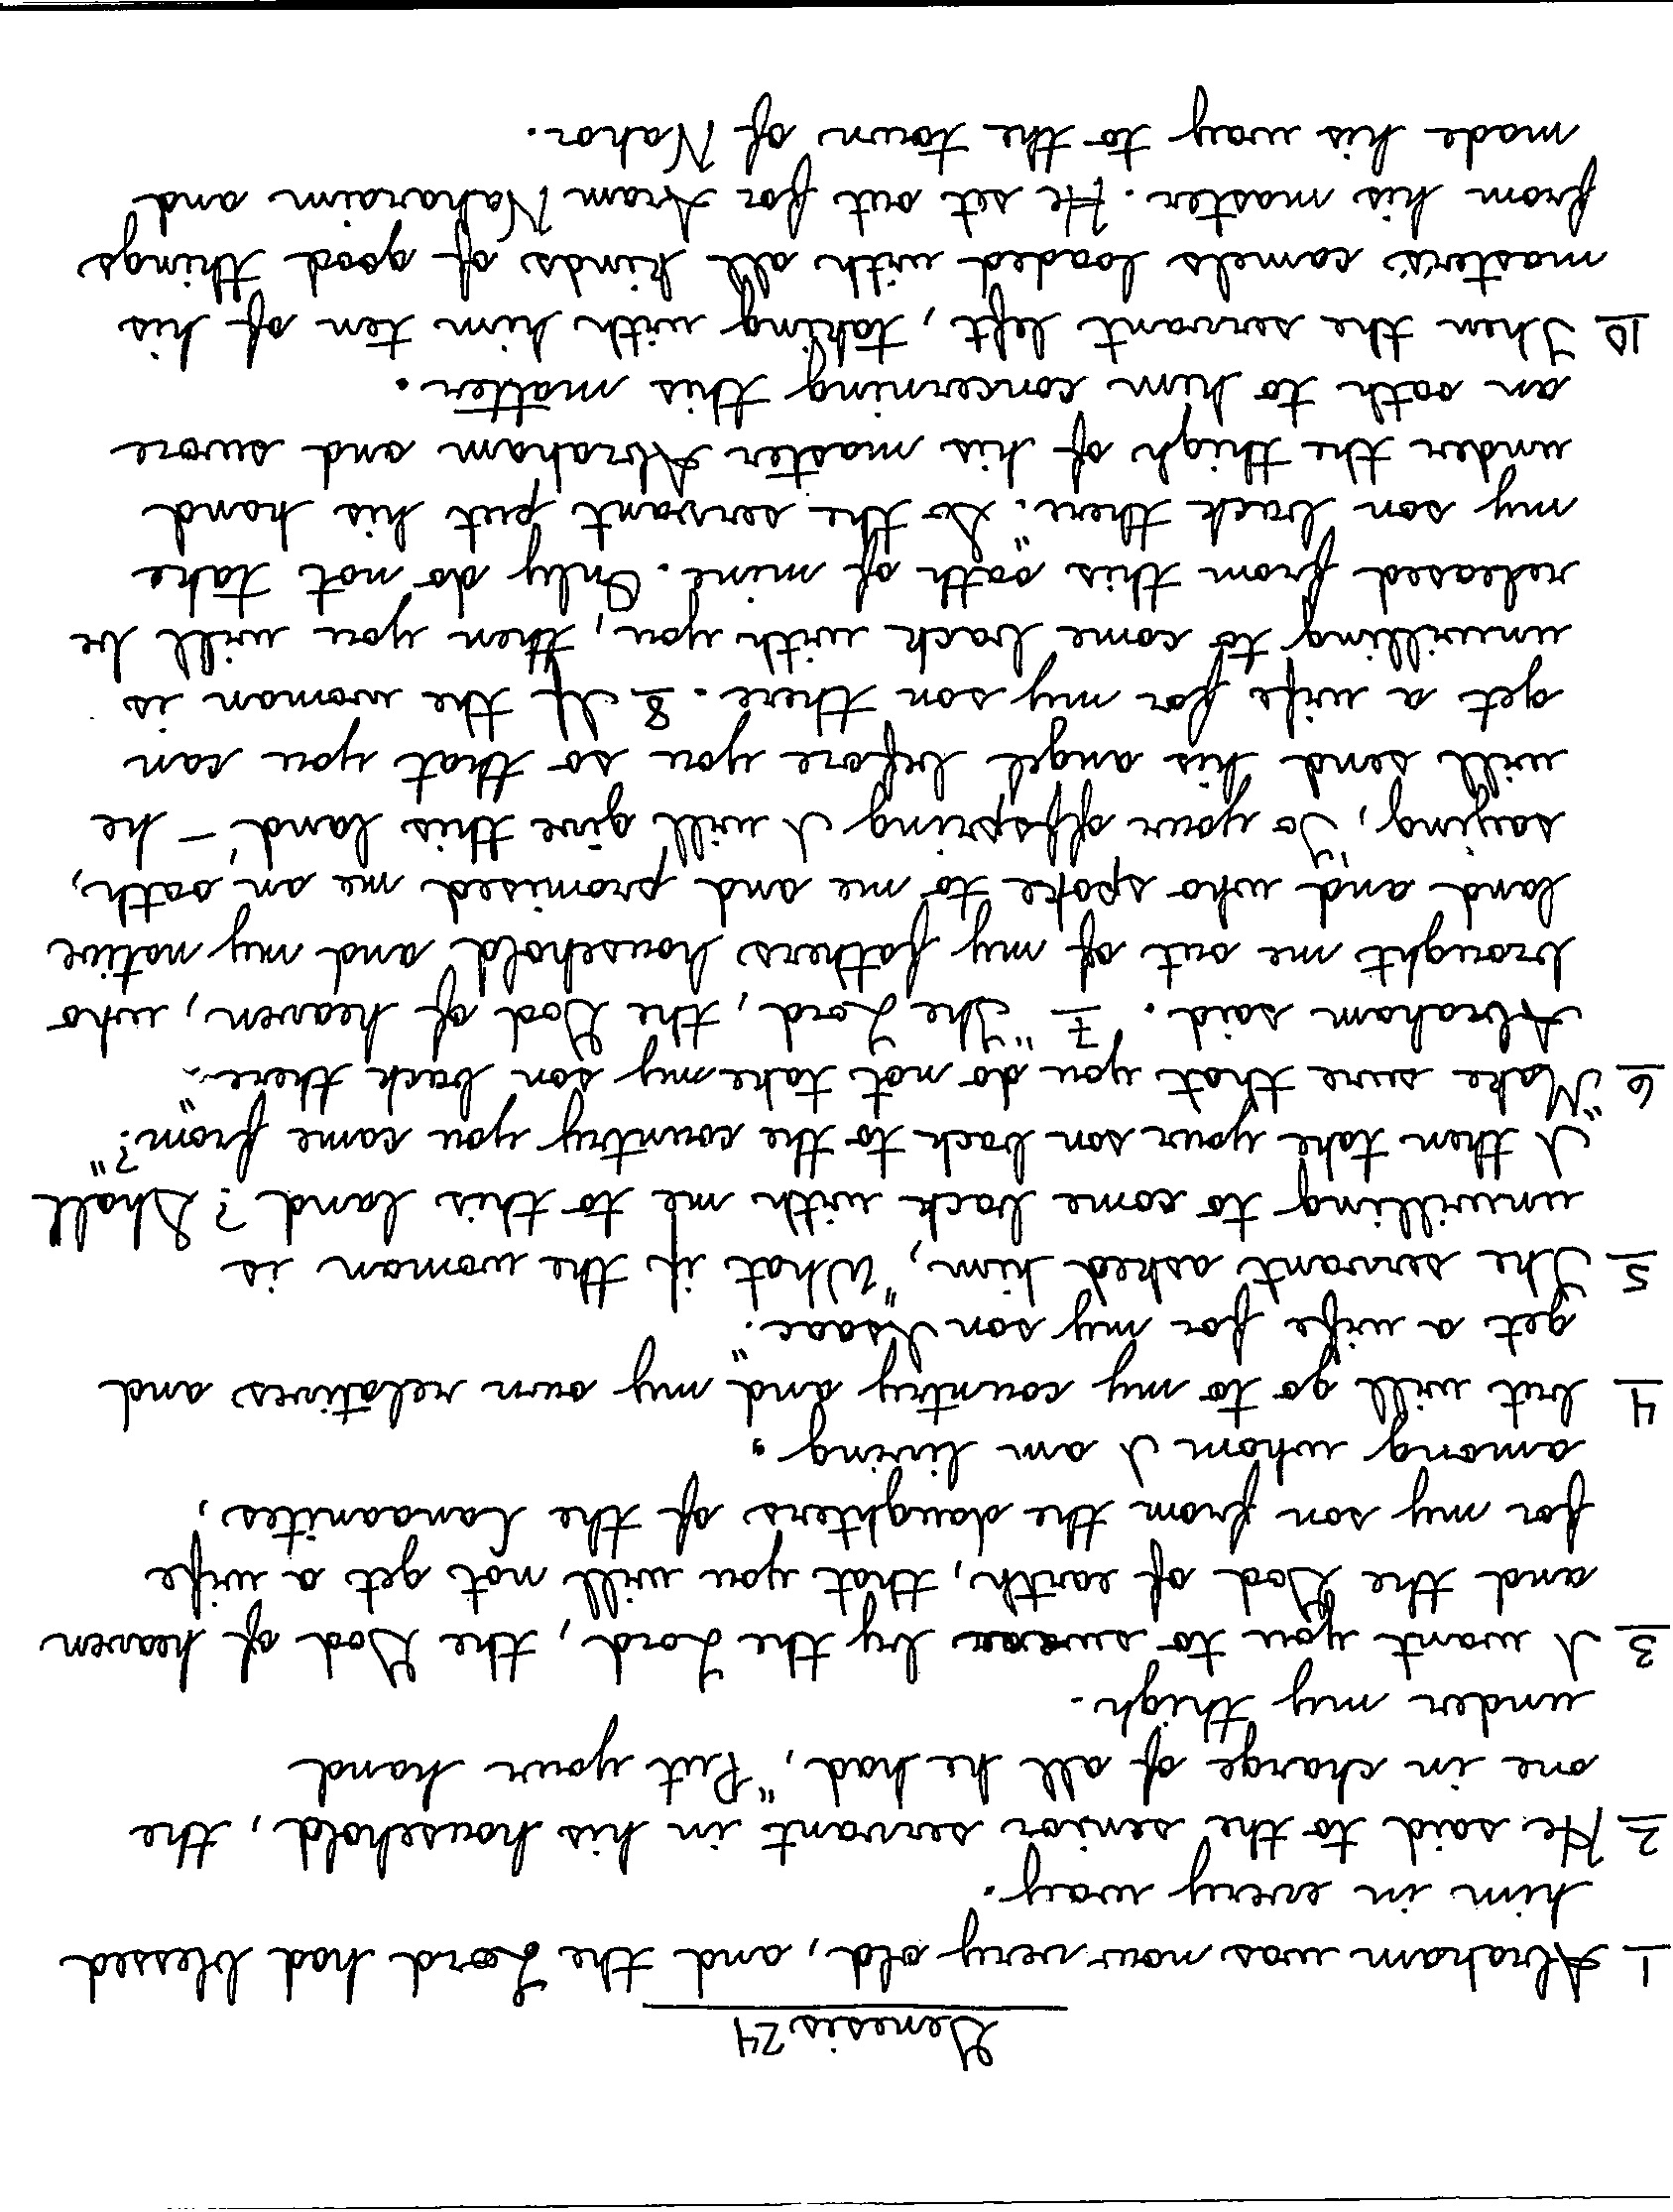 Genesis 24
1 Abraham was now very old, and the Lord had blessed
him in every way.
2 He said to the senior servant in his household, the
one in charge of all he had, "Put your hand
under my thigh.
3 I want you to swear by the Lord, the God of heaven
and the God of earth, that you will not get a wife
for my son from the daughters of the Canaanites,
among whom I am living.
4 but will go to my country and my own relatives and
get a wife for my son Isaac."
5 The servant asked him, "What if the woman is
unwilling to come back with me to this land? Shall
I then take your son back to the country you came from?"
6 "Make sure that you do not take my son back there."
Abraham said. 7 "The Lord, the God of heaven, who
brought me out of my fathers household and my native
land and who spoke to me and promised me an oath,
saying, 'To your offspring I will give this land' - he
will send his angel before you so that you can
get a wife for my son there. 8 If the woman is
unwilling to come back with you, then you will be
released from this oath of mine. Only do not take
my son back there." So the servant put his hand
under the thigh of his master Abraham and swore
an oath to him concerning this matter.
10 Then the servant left, taking with him ten of his
master's camels loaded with all kinds of good things
from his master. He set out for Aram Naharaim and
made his way to the town of Nahor.